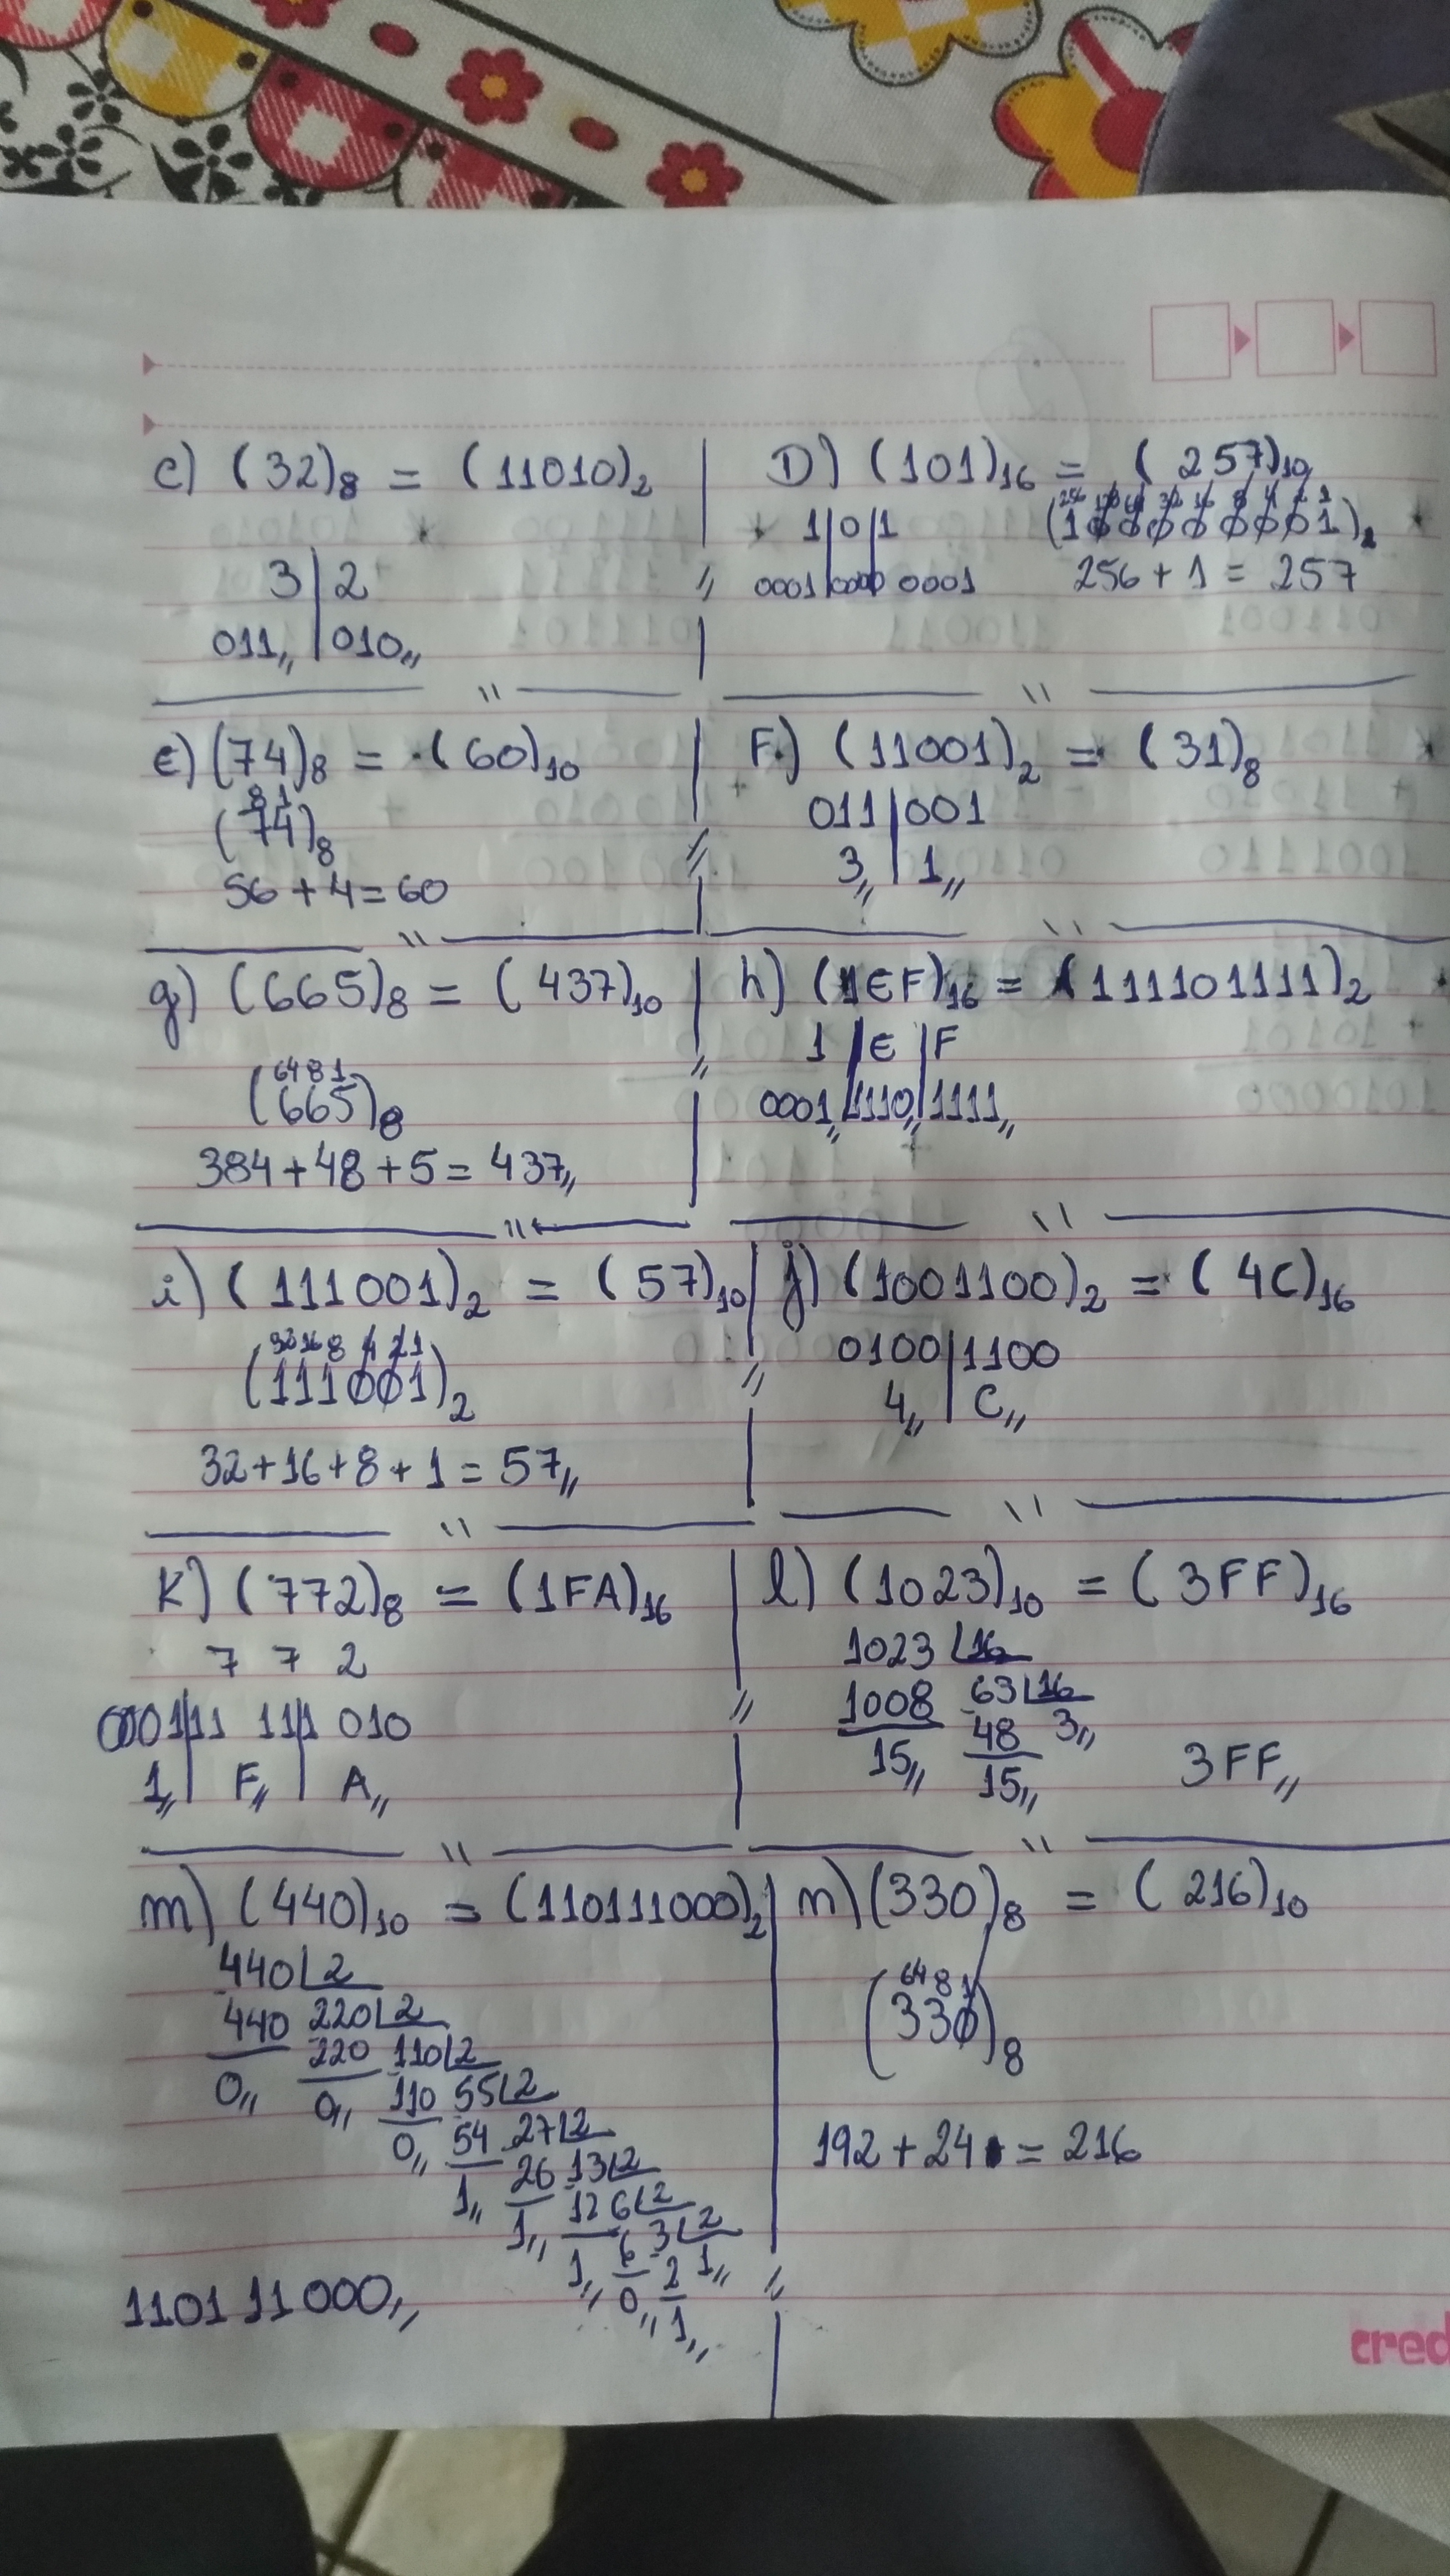 C) (32)8 = (11010)2
3|2
011,,|010,,
D) (101)16 = (257)10
1|0|1
256 128 64 32 16 8 4 2 1
(100000001)2
0001|0000|0001
256 + 1 = 257
e) (74)8 = (60)10
8 1
(74)8
56 + 4 = 60
F.) (11001)2 = (31)8
011|001
3,,|1,,
g) (665)8 = (437)10
64 8 1
(665)8
384 + 48 + 5 = 437,,
h) (1EF)16 = (111101111)2
1|E|F
0001,,|1110,,|1111,,
i) (111001)2 = (57)10
32 16 8 4 2 1
(111001)2
32 + 16 + 8 + 1 = 57,,
j) (1001100)2 = (4C)16
0100|1100
4,,|C,,
K) (772)8 = (1FA)16
7 7 2
0001|11 11|1 010
1,,|F,,|A,,
l) (1023)10 = (3FF)16
1023 |16
1008 63|16
15,, 48 3,,
15,,
3FF,,
m) (440)10 = (110111000)2
440|2
440 220|2
0,, 220 110|2
0,, 110 55|2
0,, 54 27|2
1,, 26 13|2
1,, 12 6|2
1,, 6 3|2
0,, 2 1,,
1,,
110111000,,
n) (330)8 = (216)10
64 8 1
(330)8
192 + 24 = 216
cred